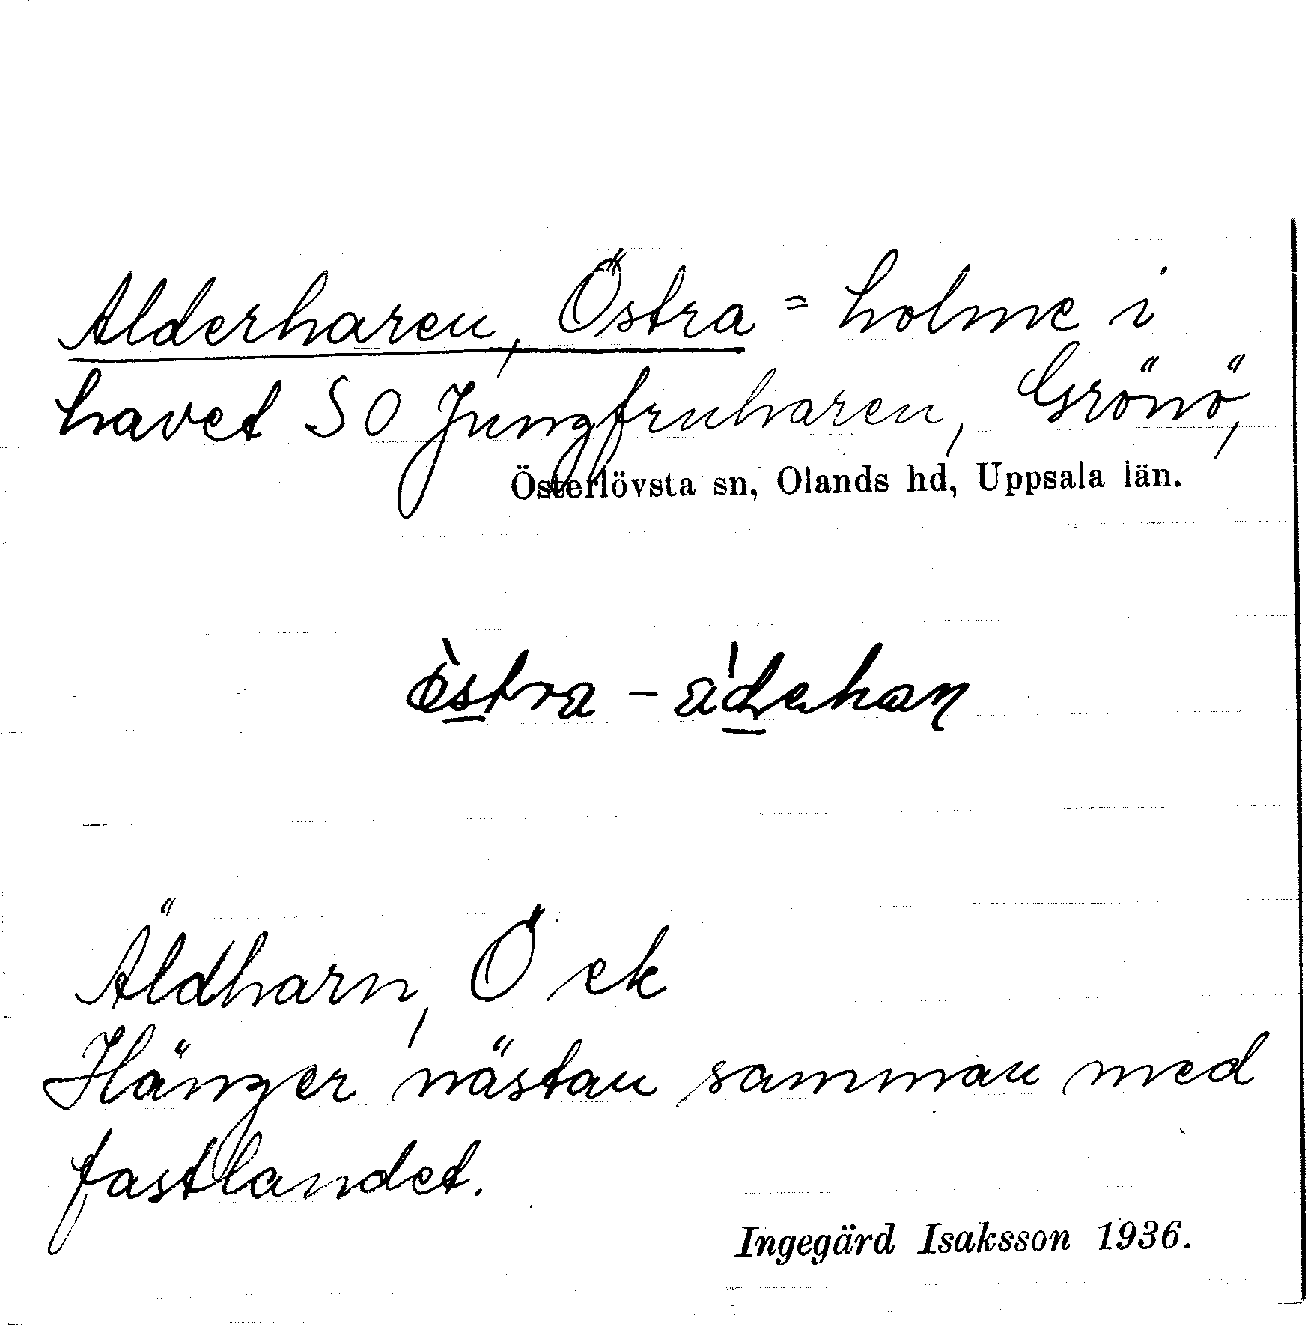 Alderharen, Östra = holme i
havet SO Jungfruharen, Grönö,
Österlövsta sn, Olands hd, Uppsala län.
Äldharn, Ö ek
Hänger nästan samman med
fastlandet.
Ingegärd Isaksson 1936.